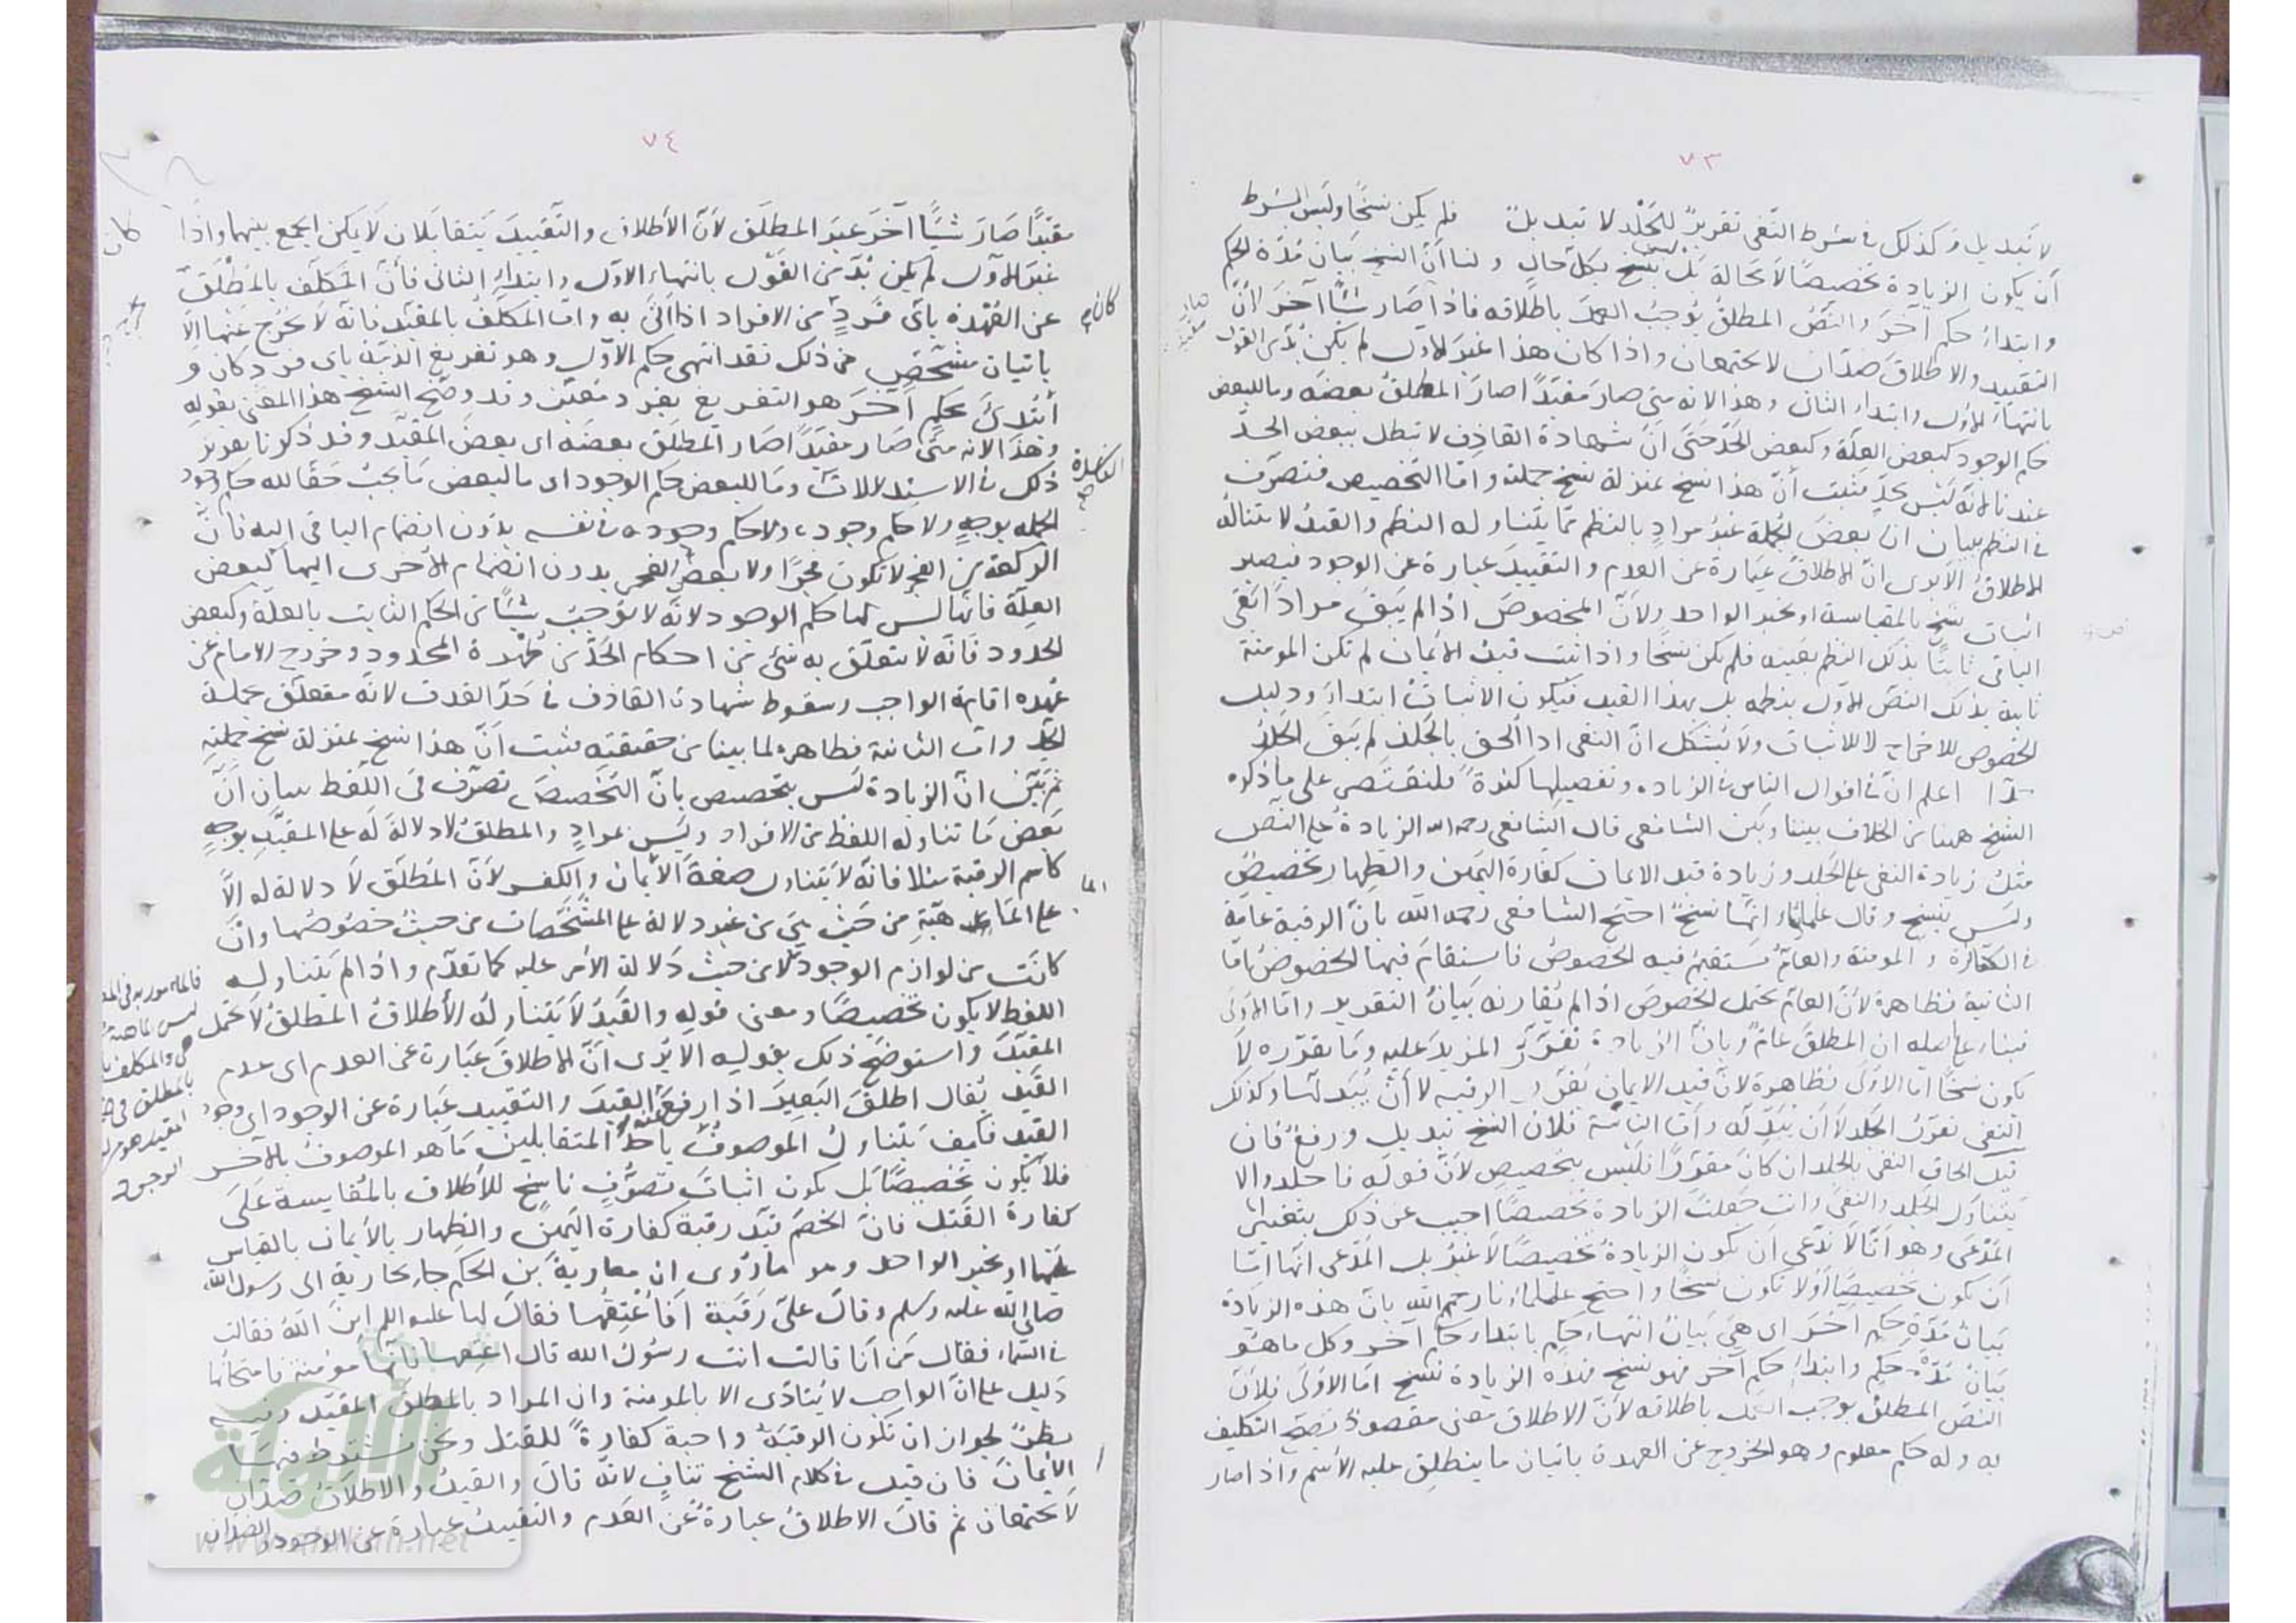 ٧٣
لا تبديل وكذلك في شرط النفي تقريرٌ للجَلْد لا تبديل فلم يكن نسخًا وليس الشرط
أن يكون الزيادة تخصيصًا لا محالة بل ليس بنسخ بكل حال ولنا أنّ النسخ بيان مدّة الحكم
وابتداء حكم آخر والنصّ المطلق يوجب العمل باطلاقه فاذا صار شيئًا آخر لانّ
التقييد والاطلاق ضدّان لا يجتمعان واذا كان هذا غير الأول لم يكن بدّ من القول
بانتهاء الأول وابتداء الثاني وهذا لانه متى صار مقيّدًا صار المطلق بعضه وما للبعض
حكم الوجود كبعض العلّة وكبعض الحدّ حتى أنّ شهادة القاذف لا تبطل ببعض الحدّ
عندنا لانّه ليس بحدّ فثبت أنّ هذا نسخ بمنزلة نسخ جملته واما التخصيص فتصرّف
في النظم ببيان انّ بعض الجملة غير مراد بالنظم مما يتناوله النظم والقيد لا يتناوله
الاطلاق ألا يرى انّ الاطلاق عبارة عن العدم والتقييد عبارة عن الوجود فيصير
اثبات نسخ بالمقايسة او بخبر الواحد ولأنّ المخصوص اذا لم يبق مرادًا بقي
الباقي ثابتًا بذلك النظم بعينه فلم يكن نسخًا واذا ثبت قيد الأيمان لم تكن المؤمنة
ثابتة بذلك النصّ الأول بنظمه بل بهذا القيد فيكون الاثبات ابتداءً ودليل
الخصوص للاخراج لا للاثبات ولا يشكل انّ النفي اذا ألحق بالجلد لم يبق الجلد
حدًّا اعلم انّ في اقوال الناس في الزيادة وتفصيلها كثرةً فلنقتصر على ما ذكره
الشيخ ههنا من الخلاف بيننا وبين الشافعي قال الشافعي رحمه الله الزيادة على النصّ
مثل زيادة النفي على الجلد وزيادة قيد الايمان كفارة اليمين والظهار تخصيصٌ
وليس بنسخ وقال علماؤنا انّها نسخٌ احتج الشافعي رحمه الله بانّ الرقبة عامّة
في الكافرة والمؤمنة والعام يستقيم فيه الخصوص فاستقام فيها الخصوص امّا
الثانية فظاهرة لأنّ العام يحتمل الخصوص اذا لم يقارنه بيان التقرير وامّا الأولى
فبناء على اصله ان المطلق عامٌّ وبانّ الزيادة تقرّر المزيد عليه وما يقرّره لا
يكون نسخًا اما الأولى فظاهرة لانّ قيد الايمان يقرّر الرقبة لا أنْ يبدّلها وكذلك
النفي يقرّر الجلد لا أن يبدّله وأمّا الثانية فلان النسخ تبديل ورفعٌ فان
قيل الحاق النفي بالجلد ان كان مقرّرًا فليس بتخصيص لأنّ قوله فاجلدوا لا
يتناول الجلد والنفي وانت جعلت الزيادة تخصيصًا اجيب عن ذلك بتغيير
المدّعى وهو أنّا لا ندّعي أن يكون الزيادةُ تخصيصًا لا غير بل المدّعى انّها امّا
أن يكون تخصيصًا أو لا تكون نسخًا واحتج علماؤنا رحمهم الله بانّ هذه الزيادة
بيان مدّة حكم آخر اى هي بيانُ انتهاء حكم بابتداء حكم آخر وكل ما هو
بيان مدّة حكم وابتداءُ حكم آخر فهو نسخ فهذه الزيادة نسخ امّا الأولى فلأنّ
النصّ المطلق يوجب العمل باطلاقه لأنّ الاطلاق معنى مقصودٌ يصحّ التكليف
به وله حكم معلوم وهو الخروج عن العهدة باتيان ما ينطلق عليه الاسم واذا صار
٧٤
مقيّدًا صارَ شيئًا آخَر غيرَ المطلَق لأنّ الأطلاقَ والتّقييدَ يتقابلان لا يمكن الجمع بينهما واذا
غير الأول لم يكن بدٌّ من القول بانتهاء الاول وابتداء الثاني فأنّ المكلّف بالمطلق
عن العُهْدة بأي فردٍ من الافراد اذا أتى به وامّا المكلف بالمقيّد فانّه لا يخرج عنها الّا
باتيان مشخّصٍ من ذلك فقد انتهى حكم الأول وهو تفريغ الذمّة بأى فرد كان و
أبتُدِئَ بحكمٍ آخَر هو التفريغ بفرد معيّن وقد وضّح الشيخ هذا المعنى بقوله
وهذا لانه متى صار مقيّدًا صار المطلق بعضَه اى بعضَ المقيّد وقد ذكرنا تقرير
ذلك في الاستدلالات وما للبعض حكم الوجود اى ما لبعض ما يجب حقًا لله حكم وجود
الجملة بوجهٍ ولا حكم وجوده في نفسه بدون انضمام الباقي اليه فانّ
الركعة من الفجر لا تكون فجرًا ولا بعض الفجر بدون انضمام الأخرى اليها كبعض
العلّة فانّها ليس لها حكم الوجود لانّه لا توجب شيئًا من الحكم الثابت بالعلّة وكبعض
الحدود فانّه لا يتعلّق به شئ من احكام الحدّ من عُهْدة المحدود وخروج الامام عن
عهدة اقامة الواجب وسقوط شهادة القاذف في حدّ القذف لانّه متعلّق بجملة
الحدّ وامّا الثانية فظاهرة لما بينا من حقيقتِه فثبت أنّ هذا نسخ بمنزلة نسخ جملته
ثم بيّن انّ الزيادة ليس بتخصيص بانّ التخصيص تصرّف في اللّفظ ببيان أنّ
بعض ما تناوله اللفظ من الافراد ليس بمرادٍ والمطلق لا دلالةَ له على المقيّد بوجهٍ
كاسم الرقبة مثلا فانّه لا يتناول صفة الأيمان والكفر لأنّ المطلق لا دلالة له الّا
على الماهيّة من حيث هي من غير دلالة على المشخّصات من حيث خصوصها وان
كانت من لوازم الوجود لا من حيث دلالة الأمر عليه كما تقدّم واذا لم يتناوله
اللفظ لا يكون تخصيصًا ومعنى قوله والقيدُ لا يتناوله الأطلاق المطلقُ لا يحتمل
المقيّد واستوضح ذلك بقوله الا يُرى أنّ الاطلاق عبارة عن العدم اى عدم
القيد يُقال اطلق البعير اذا رفع عنه القيد والتقييد عبارة عن الوجود اى وجود
القيد فكيف يتناول الموصوفُ باحد المتقابلين ما هو الموصوف بالآخر
فلا يكون تخصيصًا بل يكون اثبات تصرّفٍ ناسخ للأطلاق بالمقايسة على
كفارة القتل فانّ الخصم قيّد رقبة كفارة اليمين والظهار بالأيمان بالقياس
عليها او بخبر الواحد وهو ما رُوى ان معاوية بن الحكم جاء بجارية الى رسول الله
صلى الله عليه وسلم وقال علىّ رَقَبة أفأُعْتِقُها فقال لها عليه السلم اين الله فقالت
في السّماء فقال مَن أنا قالت انت رسول الله قال اعتقها فانّها مؤمنة فامتحانُها
دليل على انّ الواجب لا يتأدّى الا بالمؤمنة وان المراد بالمطلق المقيّد وفيه
نظرٌ لجواز ان تكون الرقبة واجبة كفارةً للقتل ونحن نشترط فيها
الأيمانَ فان قيل في كلام الشيخ تنافٍ لانّه قال والقيد والاطلاق ضدّان
لا يجتمعان ثم قال الاطلاق عبارةٌ عن العدم والتقييد عبارة عن الوجود والضدّان
كان
الكفارة
صار
مقيد
فالمأمور به في
ليس ماهية
والمكلف
بالمطلق
المقيد هو
الوجود
شبكة
الألوكة
www.alukah.net